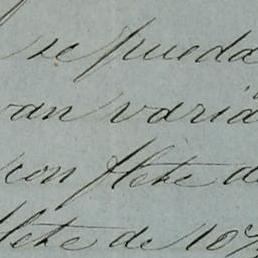 se pueda
van varia
con flete de
flete de 10%